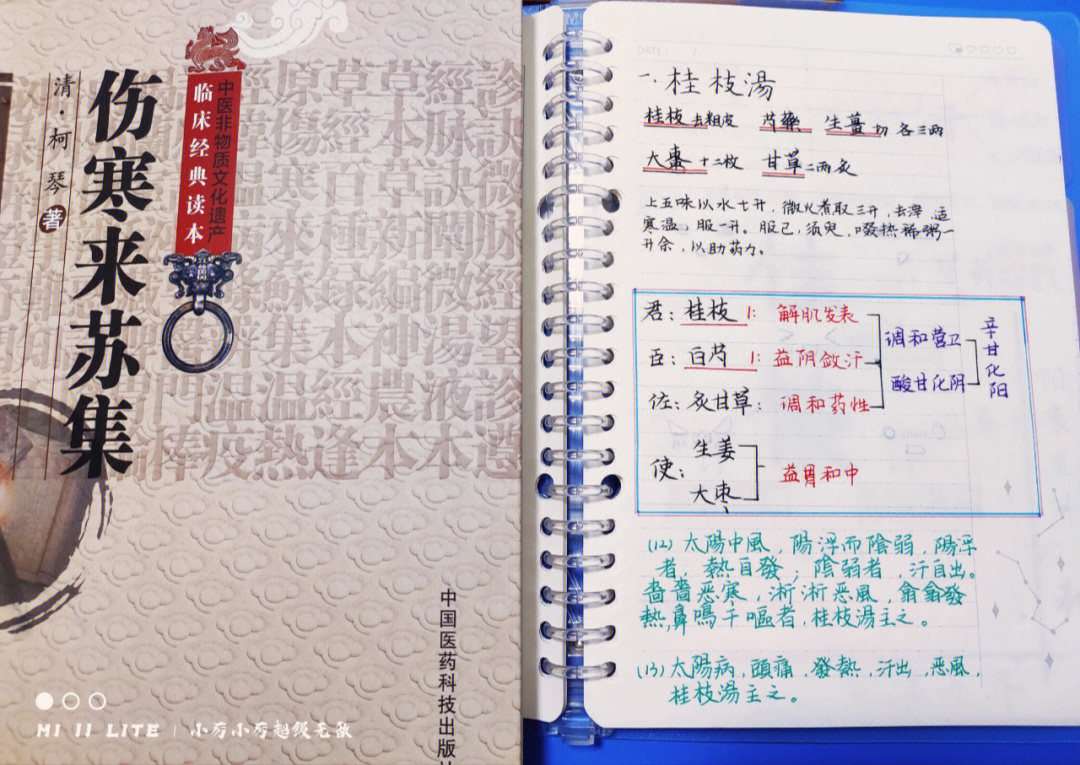 伤寒来苏集
清·柯琴 著
中医非物质文化遗产
临床经典读本
中国医药科技出版
MI 11 LITE
DATE: /
一、桂枝湯
桂枝去粗皮 芍藥 生薑切 各三两
大棗十二枚 甘草二两炙
上五味以水七升，微火煮取三升，去滓，适
寒温，服一升。服已，须臾，啜热稀粥一
升余，以助药力。
君：桂枝 1：解肌发表
臣：白芍 1：益阴敛汗
调和营卫
酸甘化阴
辛甘化阳
佐：炙甘草：调和药性
使：生姜
大枣
益胃和中
(12) 太陽中風，陽浮而陰弱，陽浮
者，熱自發；陰弱者，汗自出。
嗇嗇恶寒，淅淅恶風，翕翕發
熱，鼻鳴干嘔者，桂枝湯主之。
(13) 太陽病，頭痛，發熱，汗出，恶風，
桂枝湯主之。